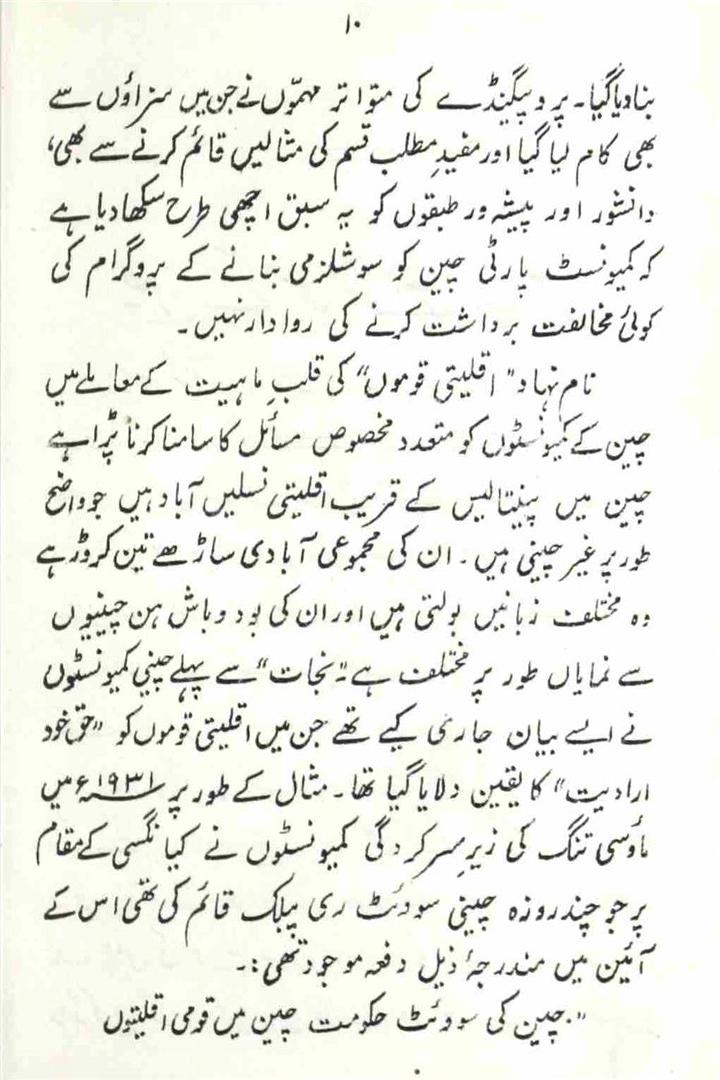 ۱۰
بنا دیا گیا۔ پروپیگنڈے کی متواتر مہموّں نے جن میں سزاؤں سے
بھی کام لیا گیا اور مفیدِ مطلب قسم کی مثالیں قائم کرنے سے بھی،
دانشور اور پیشہ ور طبقوں کو یہ سبق اچھی طرح سکھا دیا ہے
کہ کمیونسٹ پارٹی چین کو سوشلزمی بنانے کے پروگرام کی
کوئی مخالفت برداشت کرنے کی روادار نہیں۔
نام نہاد "اقلیتی قوموں" کی قلبِ ماہیت کے معاملے میں
چین کے کمیونسٹوں کو متعدد مخصوص مسائل کا سامنا کرنا پڑا ہے
چین میں پینتالیس کے قریب اقلیتی نسلیں آباد ہیں جو واضح
طور پر غیر چینی ہیں۔ ان کی مجموعی آبادی ساڑھے تین کروڑ ہے
وہ مختلف زبانیں بولتی ہیں اور ان کی بود و باش ہن چینیوں
سے نمایاں طور پر مختلف ہے۔ "نجات" سے پہلے چینی کمیونسٹوں
نے ایسے بیان جاری کیے تھے جن میں اقلیتی قوموں کو "حق خود
ارادیت" کا یقین دلایا گیا تھا۔ مثال کے طور پر ۱۹۳۱ء میں
ماؤسی تنگ کی زیرِ سرکردگی کمیونسٹوں نے کیانگسی کے مقام
پر جو چند روزہ چینی سوویٹ ری پبلک قائم کی تھی اس کے
آئین میں مندرجۂ ذیل دفعہ موجود تھی:۔
"چین کی سوویٹ حکومت چین میں قومی اقلیتوں